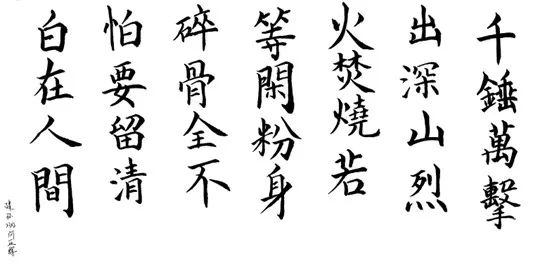 千錘萬擊
出深山烈
火焚燒若
等閑粉身
碎骨全不
怕要留清
白在人間